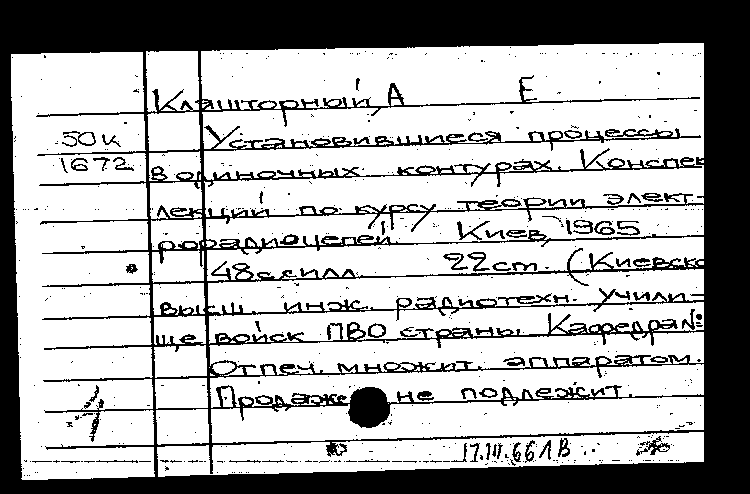 Кляшторный, А Е
50к Установившиеся процессы
1672 в одиночных контурах. Конспек
лекций по курсу теории элект-
рорадиоцепей. Киев, 1965.
48с.с илл. 22cm. (Киевско
высш. инж. радиотехн. учили-
ще войск ПВО страны. Кафедра №:
Отпеч. множит. аппаратом.
Продаже не подлежит.
1
17.III.66 1В